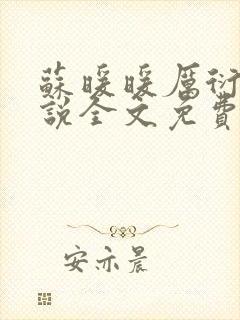 蘇暖暖厲衍
說全文免費
安亦晨